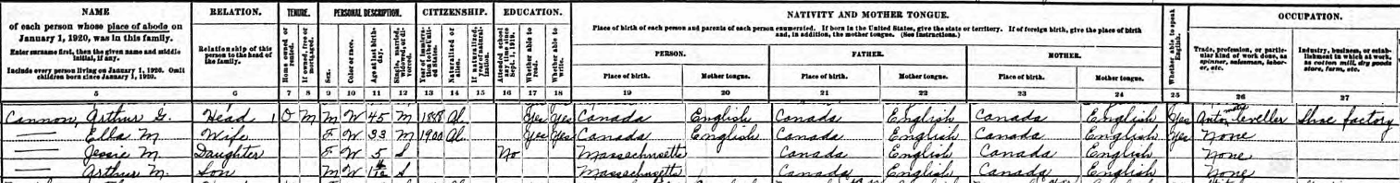 NAME
of each person whose place of abode on
January 1, 1920, was in this family.
Enter surname first, then the given name and middle
initial, if any.
Include every person living on January 1, 1920. Omit
children born since January 1, 1920.
RELATION.
Relationship of this
person to the head of
the family.
TENURE.
Home owned or
rented.
If owned, free or
mortgaged.
PERSONAL DESCRIPTION.
Sex.
Color or race.
Age at last birth-
day.
Single, married,
widowed, or di-
vorced.
CITIZENSHIP.
Year of immigra-
tion to the Unit-
ed States.
Naturalized or
alien.
If naturalized,
year of natural-
ization.
EDUCATION.
Attended school
any time since
Sept. 1, 1919.
Whether able to
read.
Whether able to
write.
NATIVITY AND MOTHER TONGUE.
Place of birth of each person and parents of each person enumerated. If born in the United States, give the state or territory. If of foreign birth, give the place of birth
and, in addition, the mother tongue. (See Instructions.)
PERSON.
Place of birth.
Mother tongue.
FATHER.
Place of birth.
Mother tongue.
MOTHER.
Place of birth.
Mother tongue.
Whether able to speak
English.
OCCUPATION.
Trade, profession, or partic-
ular kind of work done, as
spinner, salesman, labor-
er, etc.
Industry, business, or estab-
lishment in which at work,
as cotton mill, dry goods
store, farm, etc.
5 6 7 8 9 10 11 12 13 14 15 16 17 18 19 20 21 22 23 24 25 26 27
Cannon, Arthur G. Head 1 O M M W 45 M 1888 Al Yes Yes Canada English Canada English Canada English Yes leveller Shoe factory
— Ella M. Wife F W 33 M 1900 Al Yes Yes Canada English Canada English Canada English Yes None
— Jessie M. Daughter F W 5 S No Massachusetts Canada English Canada English None
— Arthur M. Son M W S Massachusetts Canada English Canada English None